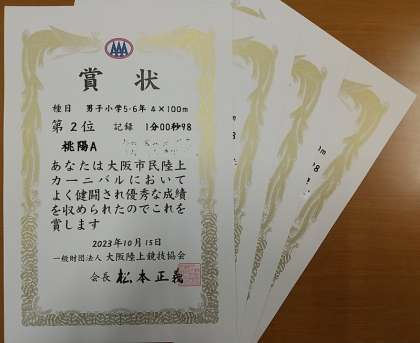 AAA
賞状
種目 男子小学5・6年 4×100m
第2位 記録 1分00秒98
桃陽A
あなたは大阪市民陸上
カーニバルにおいて
よく健闘され優秀な成績
を収められたのでこれを
賞します
2023年10月15日
一般財団法人 大阪陸上競技協会
会長 松本正義
m
98